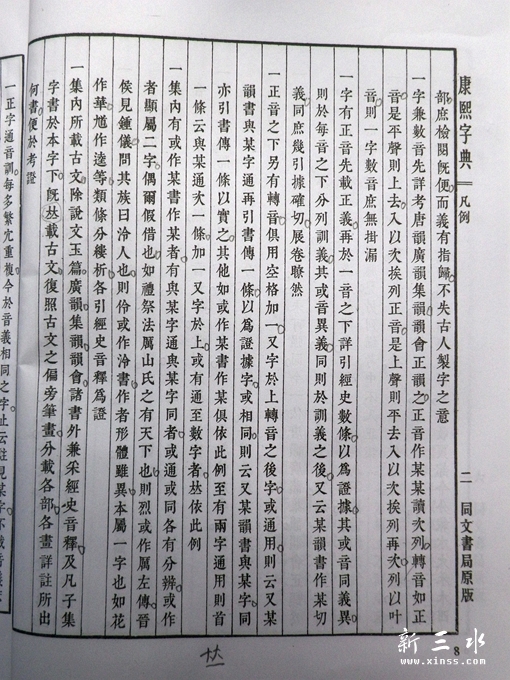 康熙字典
凡例
二
同文書局原版
8
部庶檢閱旣便而義有指歸不失古人製字之意
一字兼數音先詳考唐韻廣韻集韻韻會正韻之正音作某某讀次列轉音如正
音是平聲則上去入以次挨列正音是上聲則平去入以次挨列再次列以叶
音則一字數音庶無挂漏
一字有正音先載正義再於一音之下詳引經史數條以爲證據其或音同義異
則於每音之下分列訓義其或音異義同則於訓義之後又云某韻書作某切
義同庶幾引據確切展卷瞭然
一正音之下另有轉音俱用空格加一又字於上轉音之後字或通用則云又某
韻書與某字通再引書傳一條以爲證據字或相同則云又某韻書與某字同
亦引書傳一條以實之其他如或作某書作某俱依此例至有兩字通用則首
一條云與某通次一條加一又字於上或有通至數字者㘸依此例
一集內有或作某書作某者有與某字通與某字同者或通或同各有分辨或作
者顯屬二字偶爾假借也如禮祭法厲山氏之有天下也則烈或作厲左傳晉
侯見鍾儀問其族曰泠人也則伶或作泠書作者形體雖異本屬一字也如花
作華馗作逵等類條分縷析各引經史音釋爲證
一集內所載古文除說文玉篇廣韻集韻韻會諸書外兼采經史音釋及凡子集
字書於本字下旣㘸載古文復照古文之偏旁筆畫分載各部各畫詳註所出
何書便於考證
一正字通音訓每多繁冗重複今於音義相同之字止云註見某字不載音義庶
新三水
www.xinss.com